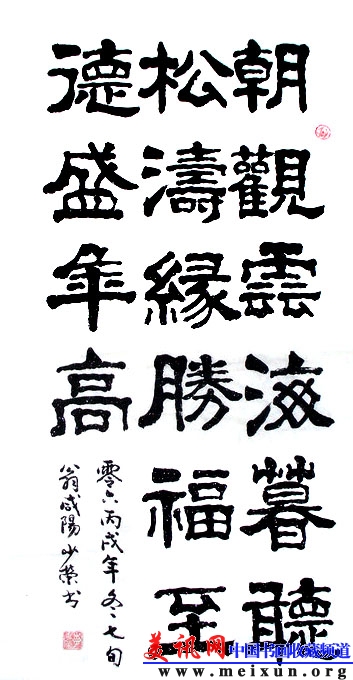 朝觀雲海暮聽
松濤緣勝福至
德盛年高
零六丙戌年冬、七旬
翁咸陽少榮书
美讯网 中国书画收藏频道
www.meixun.org